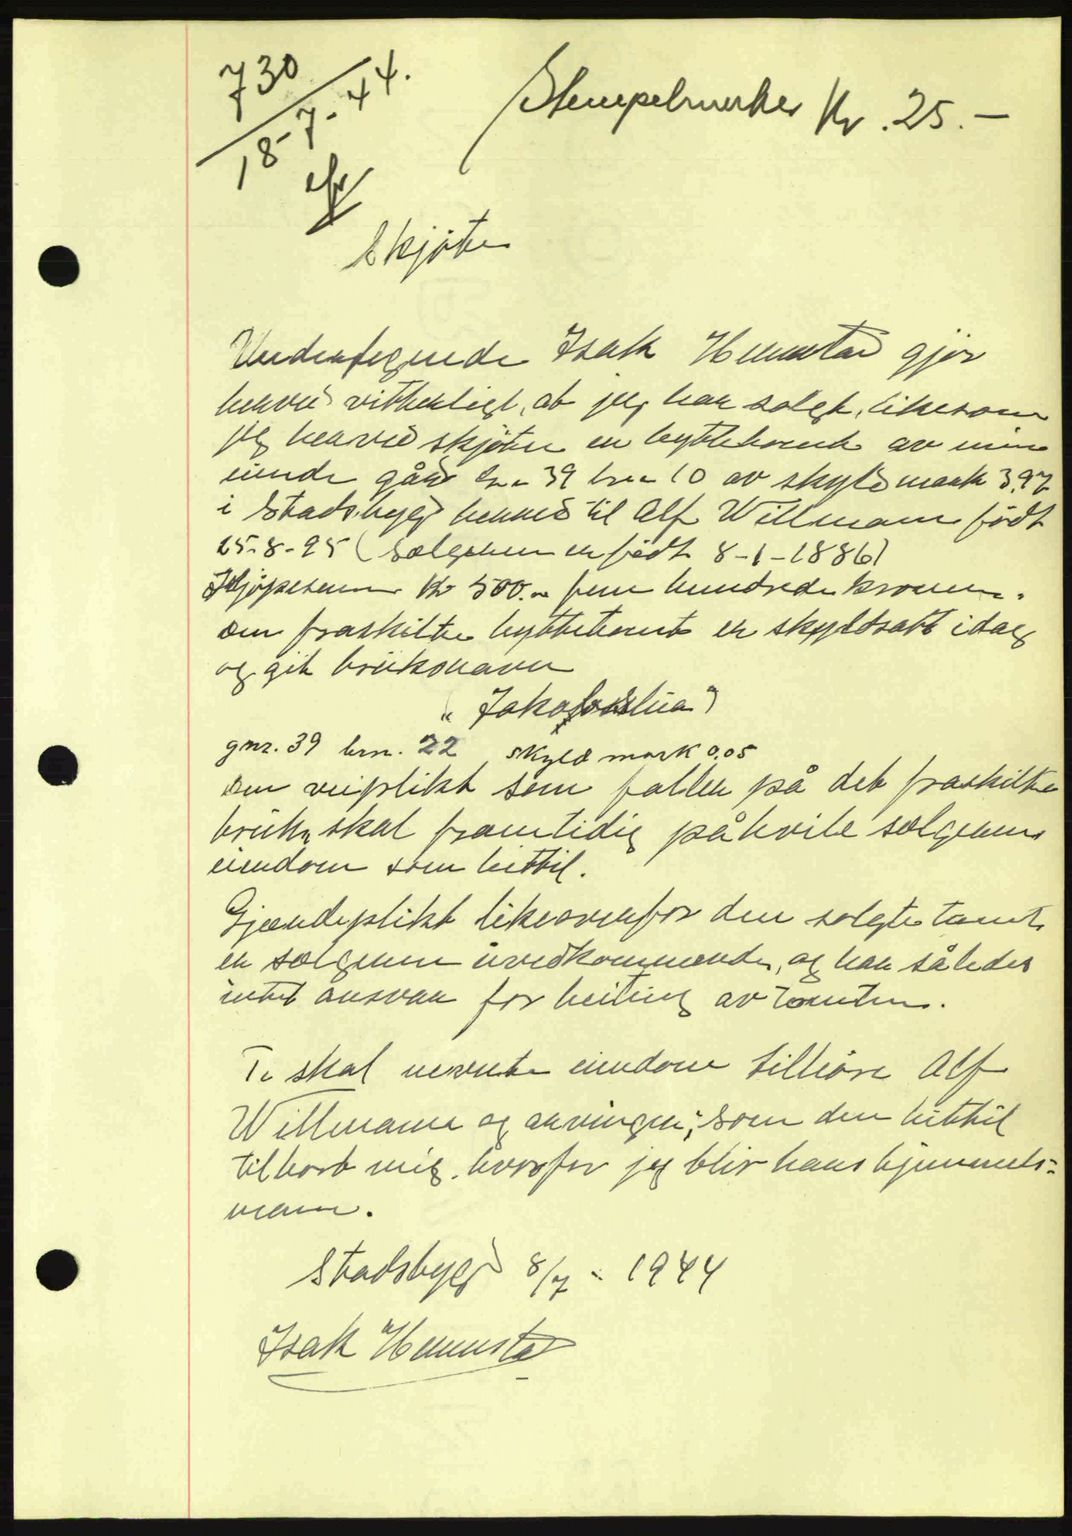 730
18-7-44.
Stempelmerker Kr. 25.-
Skjøte
Undertegnede Isak Hermstad gjør
herved vitherligt, at jeg har solgt, likesom
jeg herved skjøter en hyttetomt av min
eiende gård gnr 39 bnr 10 av skyld mark 3,97
i Stadsbygd herred til Alf Willmann født
25-8-95 (Sælgeren er født 8-1-1886)
Kjøpesum Kr 500.- fem hundrede kroner.
Den fraskilte hyttetomt er skyldsatt idag
og gik bruksnavn
"Jakobslia"
gnr. 39 brn. 22 skyld mark 0,05
Den veiplikt som faller på det fraskilte
bruk, skal framtidig påhvile sælgerens
eiendom som hittil.
Gjærdeplikt likeoverfor den solgte tomt
er sælgeren uvedkommende, og har således
intet ansvar for beiting av tomten.
Ti skal nevnte eiendom tilhøre Alf
Willmann og arvinger, som den hittil
tilhørt mig, hvorfor jeg blir hans hjemmels=
mann.
Stadsbygd 8/7 - 1944
Isak Hermstad